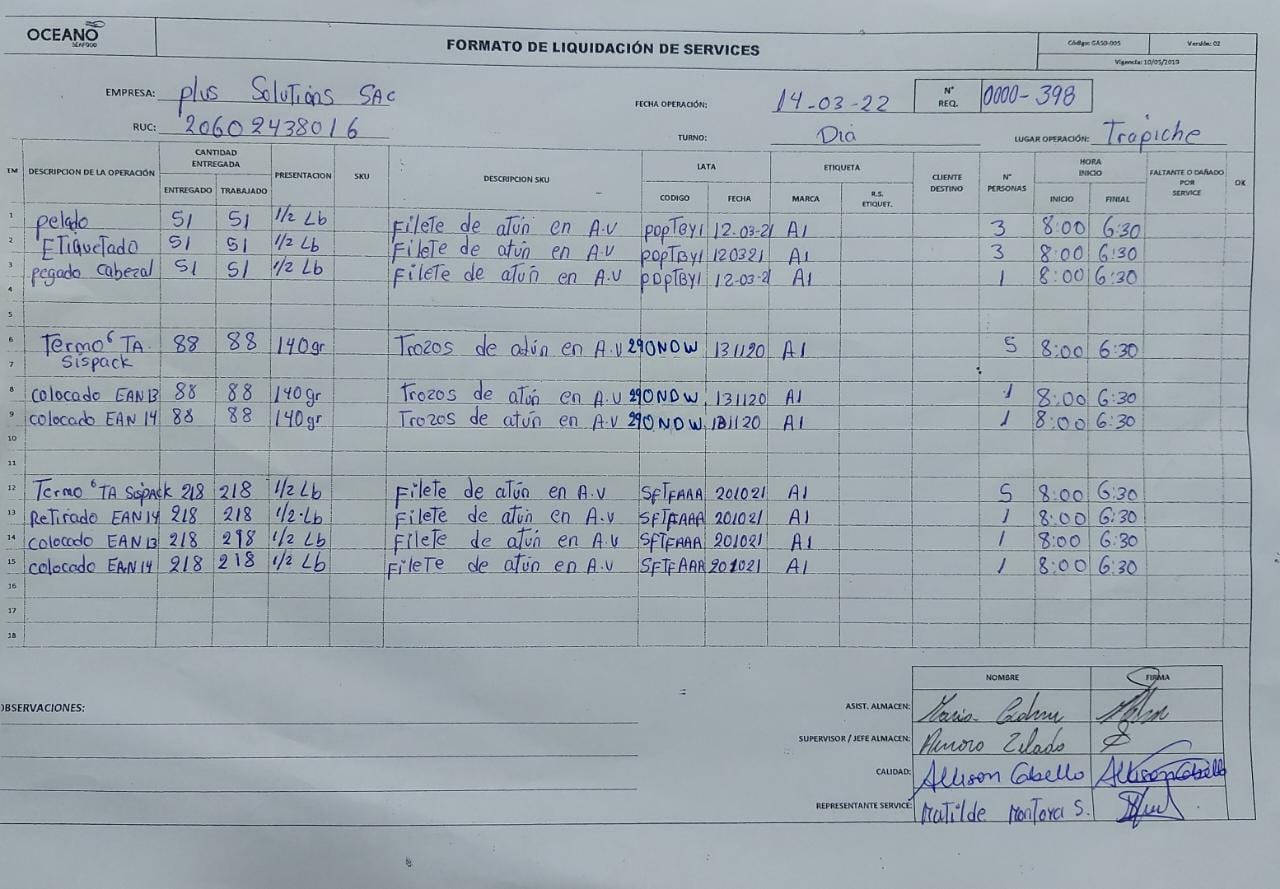 OCEANO
SEAFOOD
FORMATO DE LIQUIDACIÓN DE SERVICES
Código: GASO-005 Versión: 02
Vigencia: 10/05/2019
EMPRESA: plus Solutions SAC
FECHA OPERACIÓN: 14-03-22
N° REQ. 0000-398
RUC: 20602438016
TURNO: Dia
LUGAR OPERACIÓN: Trapiche
EM DESCRIPCION DE LA OPERACIÓN CANTIDAD ENTREGADA PRESENTACION SKU DESCRIPCION SKU LATA ETIQUETA CLIENTE DESTINO N° PERSONAS HORA INICIO FALTANTE O DAÑADO POR SERVICE OK
ENTREGADO TRABAJADO CODIGO FECHA MARCA R.S. ETIQUET. INICIO FINIAL
1 pelado 51 51 1/2 Lb Filete de atún en A.V POPTBY1 12-03-21 A1 3 8:00 6:30
2 ETiquetado 51 51 1/2 Lb Filete de atún en A.V POPTBY1 120321 A1 3 8:00 6:30
3 pegado Cabezal 51 51 1/2 Lb FileTe de atún en A.V POPTBY1 12-03-21 A1 1 8:00 6:30
4
5
6 Termo 6 TA 88 88 140gr Trozos de atún en A.V 290NDW 131120 A1 5 8:00 6:30
7 Sispack
8 colocado EAN 13 88 88 140gr Trozos de atún en A.V 290NDW 131120 A1 1 8:00 6:30
9 colocado EAN 14 88 88 140gr Trozos de atún en A.V 290NDW 131120 A1 1 8:00 6:30
10
11
12 Termo 6 TA Sispack 218 218 1/2 Lb Filete de atún en A.V SFTFAAA 201021 A1 5 8:00 6:30
13 Retirado EAN 14 218 218 1/2 Lb Filete de atún en A.V SFTFAAA 201021 A1 1 8:00 6:30
14 colocado EAN 13 218 218 1/2 Lb Filete de atún en A.V SFTFAAA 201021 A1 1 8:00 6:30
15 colocado EAN 14 218 218 1/2 Lb FileTe de atún en A.V SFTFAAA 201021 A1 1 8:00 6:30
16
17
18
NOMBRE FIRMA
OBSERVACIONES:
ASIST. ALMACEN:
SUPERVISOR / JEFE ALMACEN:
CALIDAD: Allison Cabello Allison Cabello
REPRESENTANTE SERVICE: Matilde Montoya S.